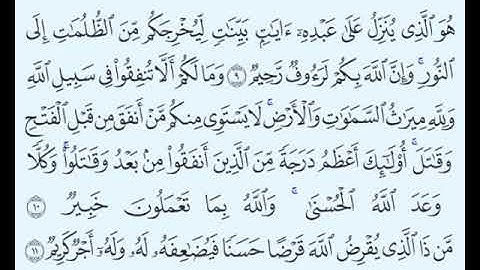 هُوَ ٱلَّذِى يُنَزِّلُ عَلَىٰ عَبْدِهِۦٓ ءَايَٰتٍۭ بَيِّنَٰتٍ لِّيُخْرِجَكُم مِّنَ ٱلظُّلُمَٰتِ إِلَى
ٱلنُّورِ ۚ وَإِنَّ ٱللَّهَ بِكُمْ لَرَءُوفٌ رَّحِيمٌ ٩ وَمَا لَكُمْ أَلَّا تُنفِقُوا۟ فِى سَبِيلِ ٱللَّهِ
وَلِلَّهِ مِيرَٰثُ ٱلسَّمَٰوَٰتِ وَٱلْأَرْضِ ۚ لَا يَسْتَوِى مِنكُم مَّنْ أَنفَقَ مِن قَبْلِ ٱلْفَتْحِ
وَقَٰتَلَ ۚ أُو۟لَٰٓئِكَ أَعْظَمُ دَرَجَةً مِّنَ ٱلَّذِينَ أَنفَقُوا۟ مِنۢ بَعْدُ وَقَٰتَلُوا۟ ۚ وَكُلًّا
وَعَدَ ٱللَّهُ ٱلْحُسْنَىٰ ۚ وَٱللَّهُ بِمَا تَعْمَلُونَ خَبِيرٌ ١٠
مَّن ذَا ٱلَّذِى يُقْرِضُ ٱللَّهَ قَرْضًا حَسَنًا فَيُضَٰعِفَهُۥ لَهُۥ وَلَهُۥٓ أَجْرٌ كَرِيمٌ ١١